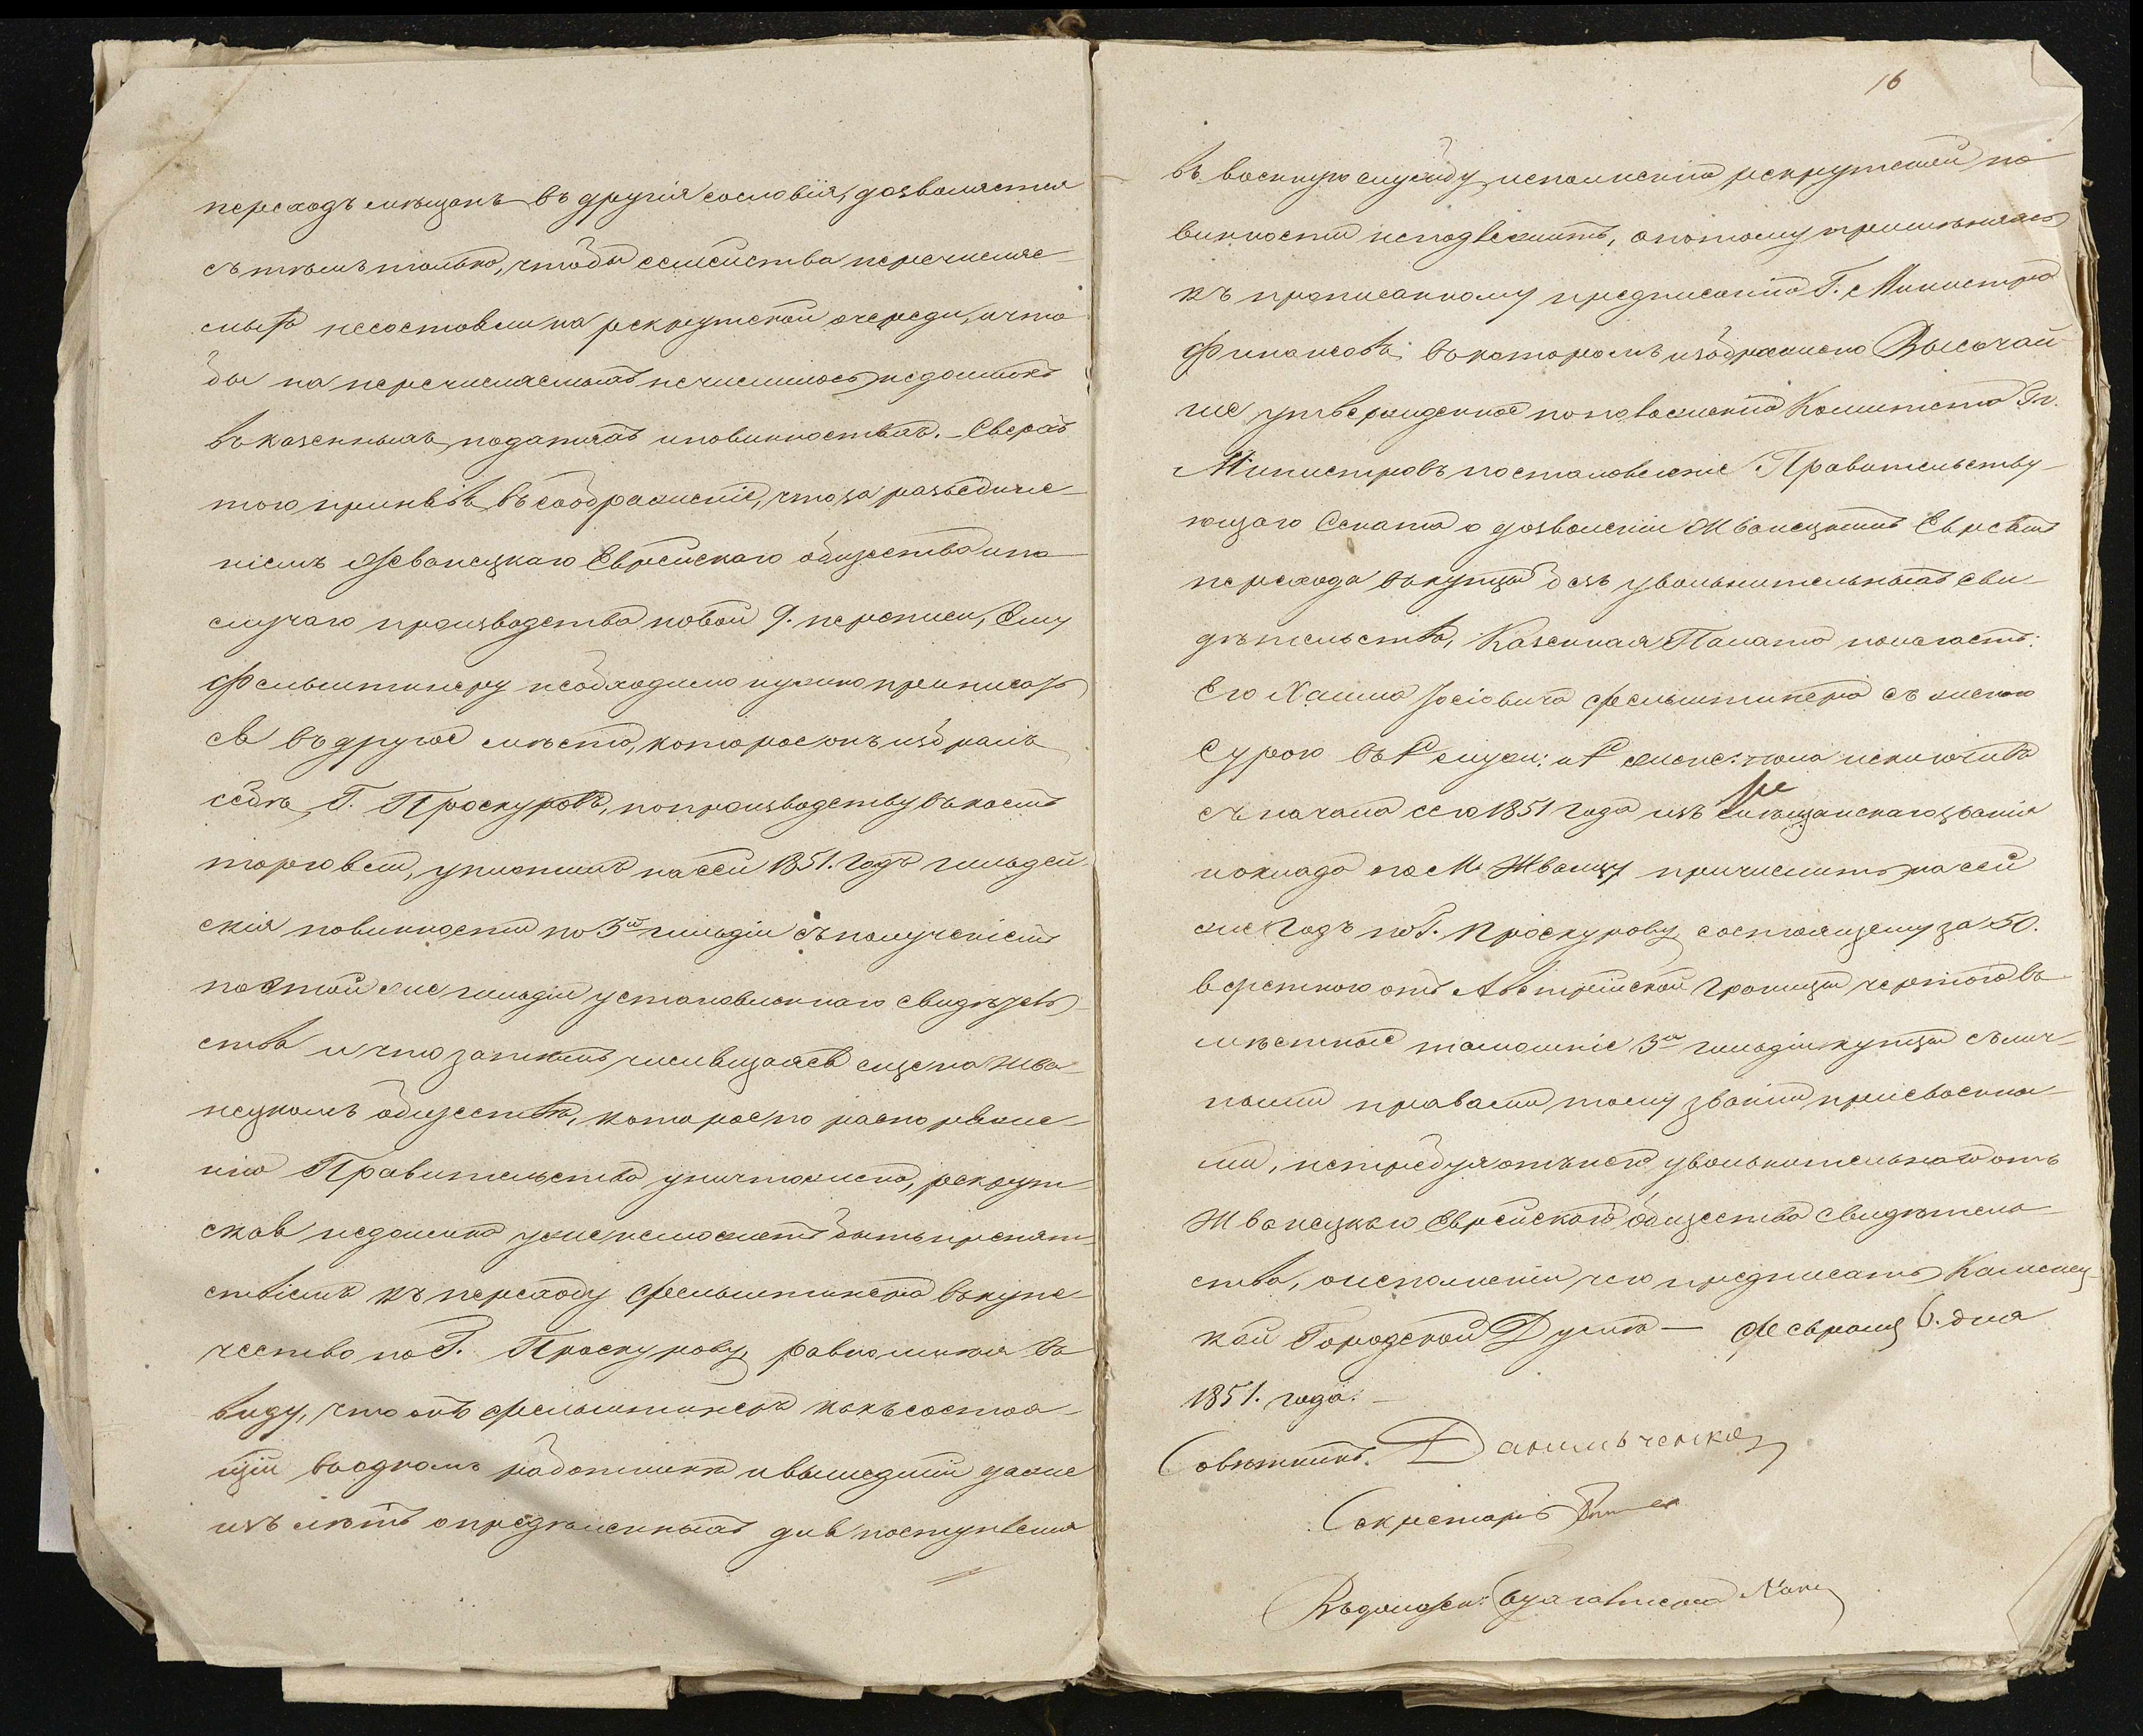 переходъ мѣщанъ въ другія сословія, дозволяется
съ тѣмъ только, чтобы семейства перечисляе-
мыя несостояли на рекрутской очереди, и что
бы на перечисляемыхъ нечислилось недоимокъ
въ казенныхъ податяхъ и повинностяхъ. – Сверхъ
того принявъ въ соображеніе, что за разъедине-
ніемъ Жванецкаго Еврейскаго общества и по
случаю производства новой 9. переписи, Ему
Фельштинеру необходимо нужно приписать
ся въ другое мѣсто, которое онъ избралъ
себѣ Г. Проскуровъ, по производству въ коемъ
торговли, уплотилъ на сей 1851. годъ гильдей-
скія повинности по 3й гильдіи съ полученіемъ
по этой же гильдіи установленнаго свидѣтель-
ства и что затѣмъ числящаяся еще на Жва-
нецкомъ обществѣ, которое по распоряже-
нію Правительства уничтожено, рекрут-
ская недоимка уже неможетъ быть препят-
ствіемъ къ переходу Фельштинера въ купе-
чество по Г. Проскурову, равно имѣя въ
виду, что онъ Фельштинеръ какъ состоя-
щій въ одномъ работникѣ и вышедшій даже
изъ лѣтъ опредѣленныхъ для поступленія
16
въ воєнную службу, исполненію рекрутской по
винности неподлежитъ, а потому примѣняясь
къ прописанному предписанію Г. Министра
Финансовъ, въ которомъ изображено Высочай
ше утвержденное по положенію Комитета Гг.
Министровъ постановленіе Правительству-
ющаго Сената о дозволеніи Жванецкимъ Евреямъ
перехода въ купцы безъ увольнительныхъ сви-
дѣтельствъ, Казенная Палата полагаетъ:
Его Хаима Іосіовича Фельштинера съ женою
Сурою въ 1 мужс: и 1 женс: пола исключивъ
съ начала сего 1851 года изъ мѣщанскаго званія
и оклада по М. Жванцу причислить на сей
же годъ по Г. Проскурову состоящему за 50.
верстною отъ Австрійской границы чертою въ
мѣстные тамошніе 3й гильдіи купцы съ лич-
ными правами тому званію присвоенны-
ми, нетребуя отъ него увольнительнаго отъ
Жванецкаго Еврейскаго общества свидѣтель-
ства, о исполненіи чего предписать Каменец-
кой Городской Думѣ – Февраля 6. дня
1851. года. –
Совѣтникъ. Данильченко
Секретарь